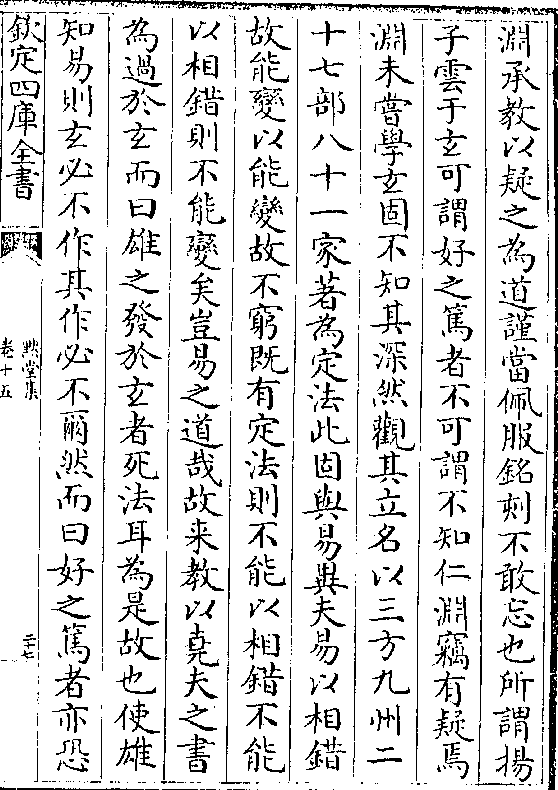 淵承教以疑之為道謹當佩服銘刻不敢忘也所謂揚
子雲于玄可謂好之篤者不可謂不知仁淵竊有疑焉
淵未嘗學玄固不知其深然觀其立名以三方九州二
十七部八十一家著為定法此固與易異夫易以相錯
故能變以能變故不窮既有定法則不能以相錯不能
以相錯則不能變矣豈易之道哉故来教以堯夫之書
為過於玄而曰雄之發於玄者死法耳為是故也使雄
知易則玄必不作其作必不爾然而曰好之篤者亦恐
欽定四庫全書
默堂集
卷十五
二十七